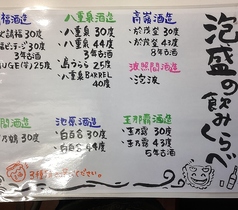 泡盛の飲みくらべ
高嶺酒造
・於茂登 30度
・於茂登 43度
8年古酒
波照間酒造
・泡波
八重泉酒造
・八重泉 30度
・八重泉 44度
3年古酒
・島うらら 25度
・八重泉BARREL
40度
福酒造
30度
30度
3年古酒
25度
玉那覇酒造
・玉の露 30度
・玉の露 43度
5年古酒
池原酒造
・白百合 30度
・白百合 44度
間酒造
30度
3種
ください。